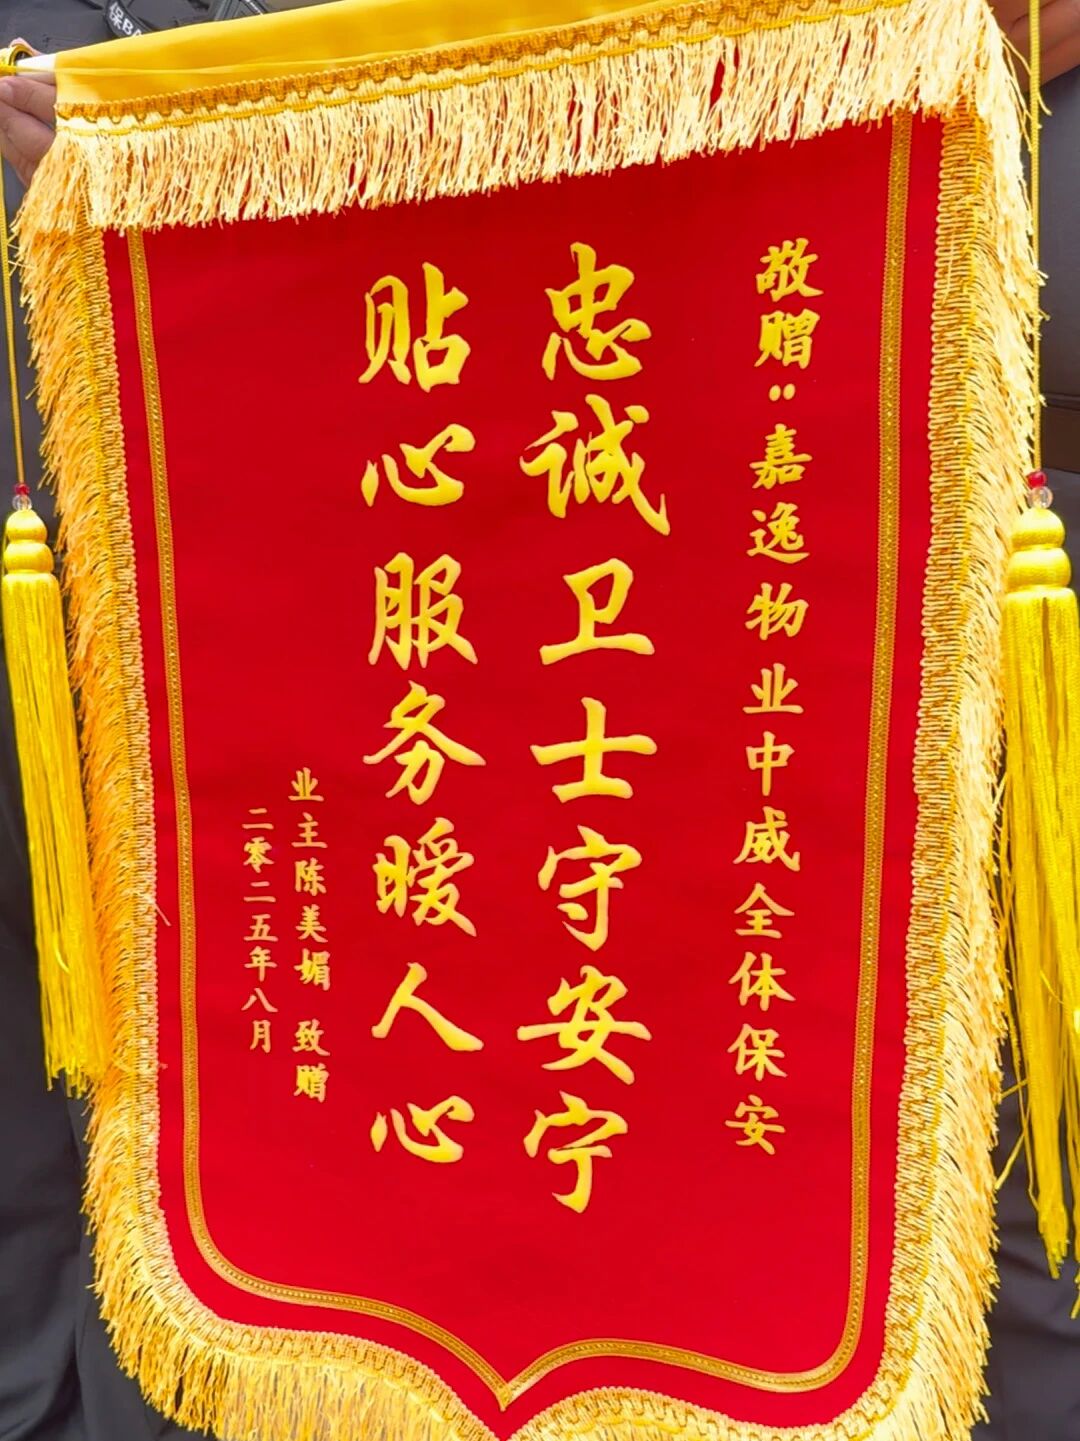 保BA
敬赠“嘉逸物业中威全体保安
忠诚卫士守安宁
贴心服务暖人心
业主陈美媚 致赠
二零二五年八月